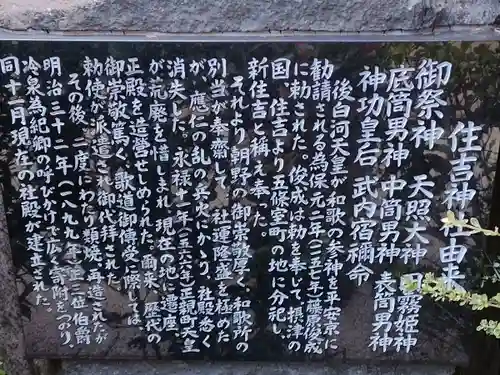 住吉神社由来
御祭神 天照大神 田霧姫神
底筒男神 中筒男神 表筒男神
神功皇后 武内宿禰命
後白河天皇が和歌の参神を平安京に
勧請される為保元二年(一一五七年)藤原俊成
に勅された。俊成は勅を奉じて、摂津の
国、住吉より五條室町の地に分祀し、
新住吉と称え奉った。
それより朝野の御崇敬厚く、和歌所の
別当が奉斎して、社運隆盛を極めた
が、応仁の乱の兵火にかゝり、社殿悉く
消失した。永禄十一年(一五六八年)正親町天皇
が荒廃を惜しまれ、現在の地に遷座、
正殿を造営せしめられた。爾来、歴代の
御崇敬篤く、歌道御傳受に際しては、
勅使が派遣され御代拝された。
その後、二度にわたり類焼、再建されたが
明治三十二年(一八九九年)正三位伯爵
冷泉為紀卿の呼びかけで広く寄附をつのり、
同十二月現在の社殿が建立された。